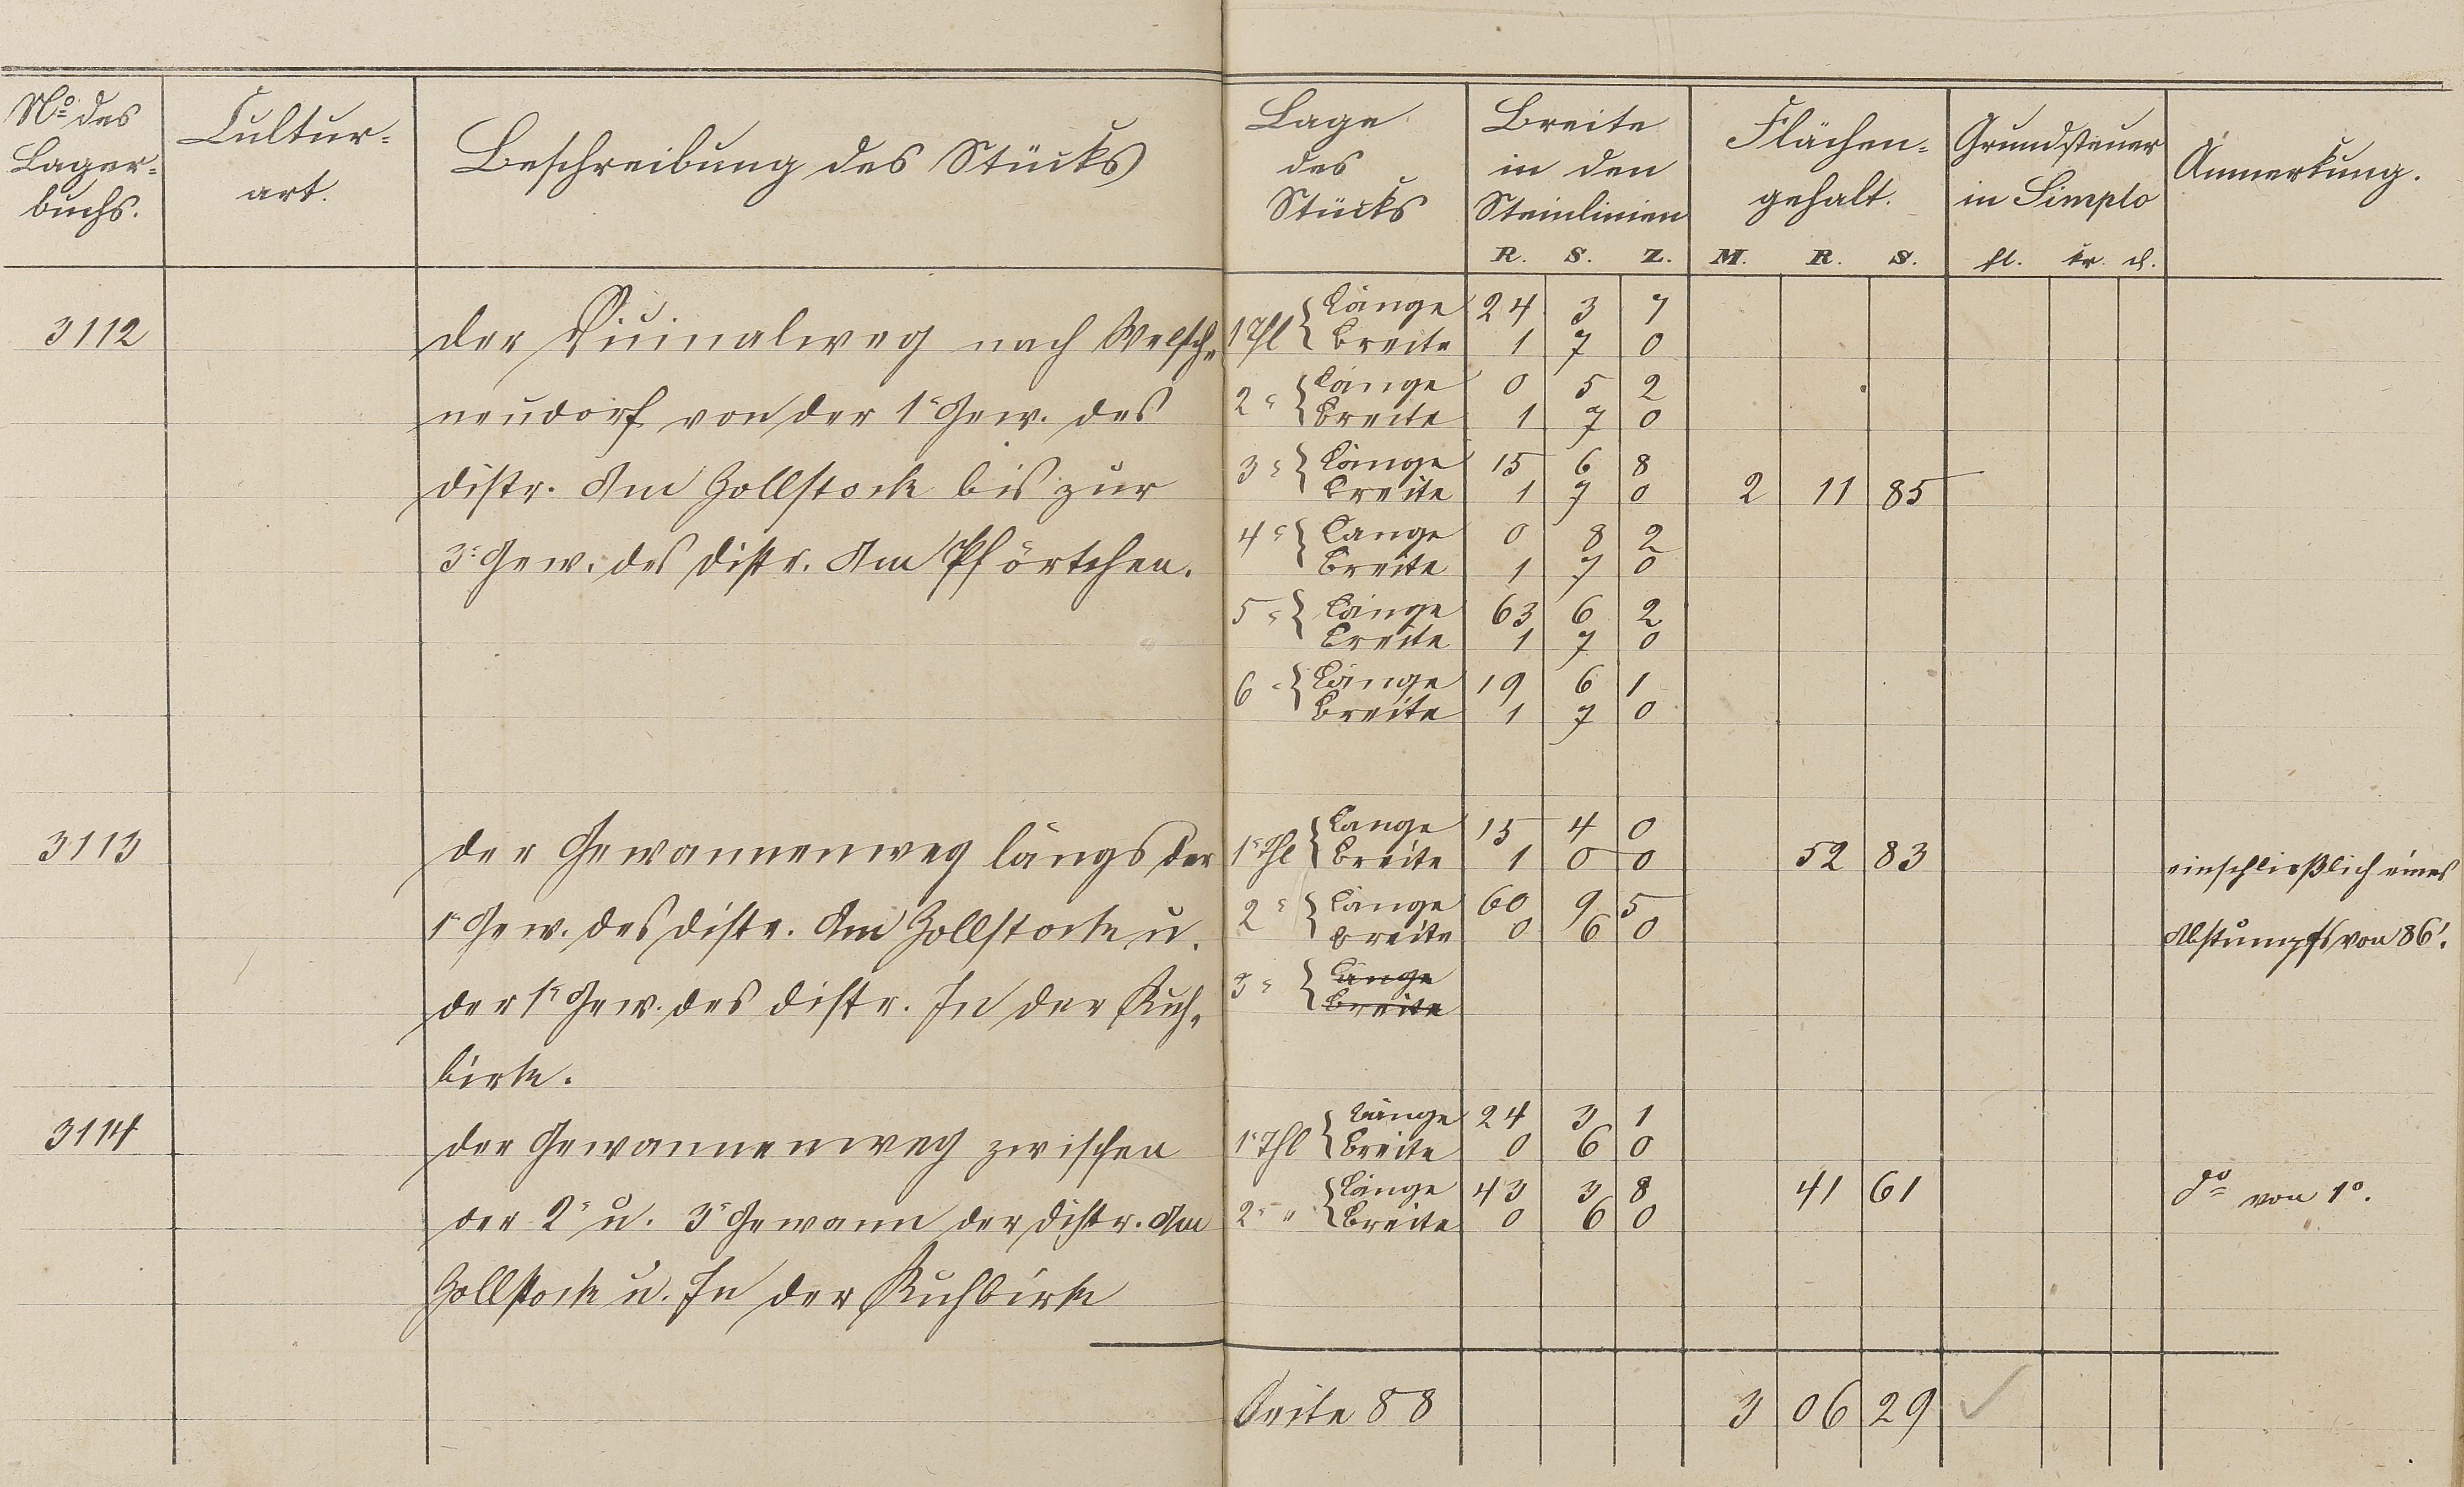 No des
Lager-
buchs.
Cultur-
art.
Beschreibung des Stücks
Lage
des
Stücks
Breite
in den
Steinlinien
R. S. Z.
Flächen-
gehalt.
M. R. S.
Grundsteuer
in Simplo
fl. kr. d.
Anmerkung.
3112
der Vicinalweg nach Welsch-
neudorf von der 1r Gew. des
distr. Am Zollstock bis zur
3r Gew. des distr. Am Pförtchen.
1 Thl Länge 24 3 7
Breite 1 7 0
2r Länge 0 5 2
Breite 1 7 0
3r Länge 15 6 8
Breite 1 7 0
2 11 85
4r Länge 0 8 2
Breite 1 7 0
5r Länge 63 6 2
Breite 1 7 0
6r Länge 19 6 1
Breite 1 7 0
3113
der Gewannenweg längs der
1r Gew. des distr. Am Zollstocke u.
der 1r Gew. des distr. In der Kuh-
birke.
1r Thl Länge 15 4 0
Breite 1 0 0
52 83
2r Länge 60 9 5
Breite 0 6 0
3r Länge
Breite
einschließlich eines
Abstumpfs von 86'.
3114
der Gewannenweg zwischen
der 2r u. 3r Gewann der distr. Am
Zollstocke u. In der Kuhbirke
1r Thl Länge 24 3 1
Breite 0 6 0
2r " Länge 43 3 8
Breite 0 6 0
41 61
do von 10.
Seite 88
3 06 29